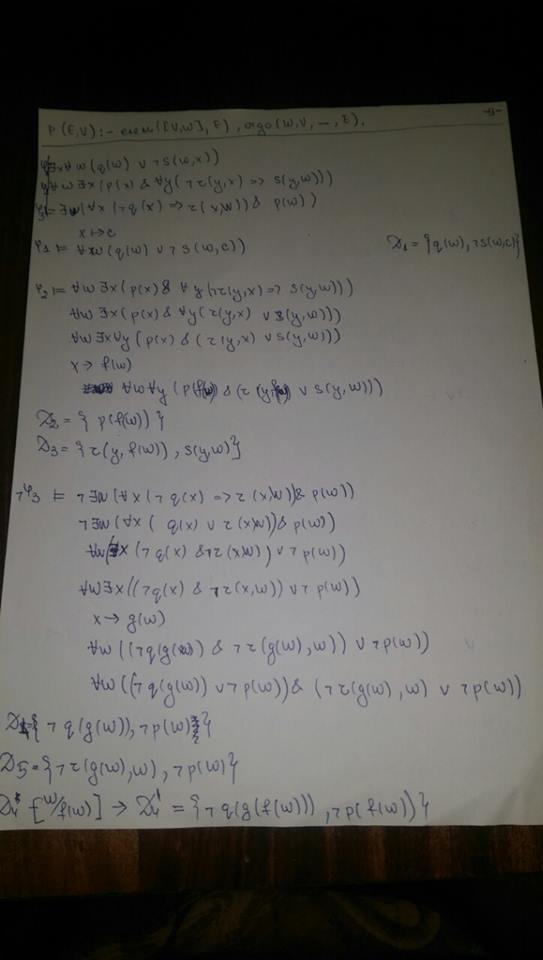 -9-
P(E,V):- ((V,W], E), (W,V, —, E).
∃x∀w(q(w) ∨ ¬s(w,x))
∀w∃x(p(x) & ∀y(¬r(y,x) => s(y,w)))
φ3:= ∃w(∀x(¬q(x) => r(x,w)) & p(w))
x↦c
φ1 |= ∀w(q(w) ∨ ¬s(w,c)) D1 = {q(w), ¬s(w,c)}
φ2 |= ∀w∃x(p(x) & ∀y(¬r(y,x) => s(y,w)))
∀w∃x(p(x) & ∀y(r(y,x) ∨ s(y,w)))
∀w∃x∀y(p(x) & (r(y,x) ∨ s(y,w)))
x→ f(w)
∀w∀y(p(f(w)) & (r(y,f(w)) ∨ s(y,w)))
D2 = {p(f(w))}
D3 = {r(y,f(w)), s(y,w)}
¬φ3 |= ¬∃w(∀x(¬q(x) => r(x,w)) & p(w))
¬∃w(∀x(q(x) ∨ r(x,w)) & p(w))
∀w(∃x(¬q(x) & ¬r(x,w)) ∨ ¬p(w))
∀w∃x((¬q(x) & ¬r(x,w)) ∨ ¬p(w))
x→ g(w)
∀w((¬q(g(w)) & ¬r(g(w),w)) ∨ ¬p(w))
∀w((¬q(g(w)) ∨ ¬p(w)) & (¬r(g(w),w) ∨ ¬p(w))
D4={¬q(g(w)), ¬p(w)}
D5={¬r(g(w),w), ¬p(w)}
D4 [w/f(w)] → D4' = {¬q(g(f(w))), ¬p(f(w))}